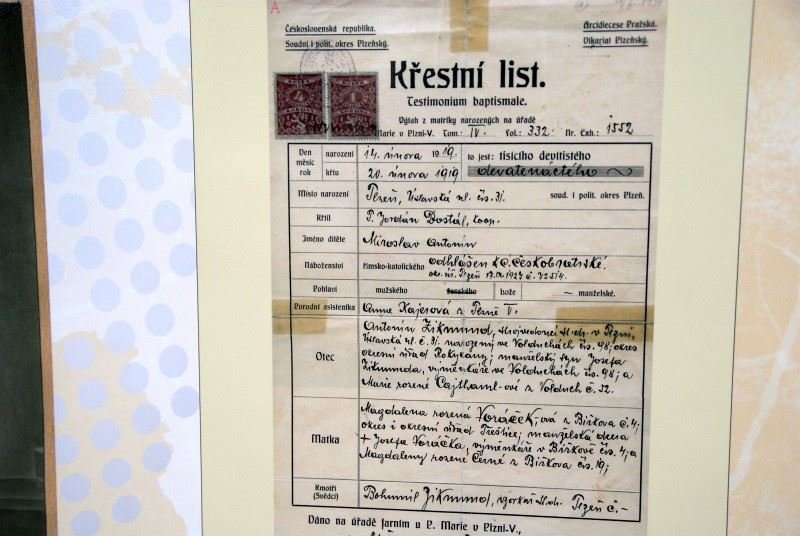 A
Československá republika.
Soudní i polit. okres Plzeňský.
Arcidiecese Pražská.
Vikariat Plzeňský.
Křestní list.
Testimonium baptismale.
Výtah z matriky narozených na úřadě
Marie v Plzni-V. Tom.: IV. Vol.: 332. Nr. Exh.: 1552
Den měsíc rok
narození 14. února 1919. to jest: tisícího devítistého
křtu 20. února 1919 devatenáctého
Místo narození Plzeň, Úslavská ul. čís. 31. soud. i polit. okres Plzeň.
Křtil P. Jordán Dostál, koop.
Jméno dítěte Miroslav Antonín
Náboženství římsko-katolického odhlášen k c. českobratrské.
Pohlaví mužského ženského lože — manželské.
Porodní asistentka Anna Kajerová z Plzně V.
Otec
Antonín Zikmund, strojvedoucí st. dr. v Plzni,
Úslavská ul. č. 31 narozený ve Volduchách čís. 98; okres
okresní úřad Rokycany; manželský syn Josefa
Zikmunda, výměnkáře ve Volduchách čís. 98; a
Marie rozené Cajthaml-ové z Volduch č. 32.
Matka
Magdalena rozená Voráček-ová z Biřkova č. 4.
okres i okresní úřad; manželská dcera
+ Josefa Voráčka, výměnkáře v Biřkově čís. 4; a
Magdaleny rozené Černé z Biřkova čís. 10;
Kmotři (Svědci) Bohumil Zikmund, Plzeň č. -
Dáno na úřadě farním u P. Marie v Plzni-V.,